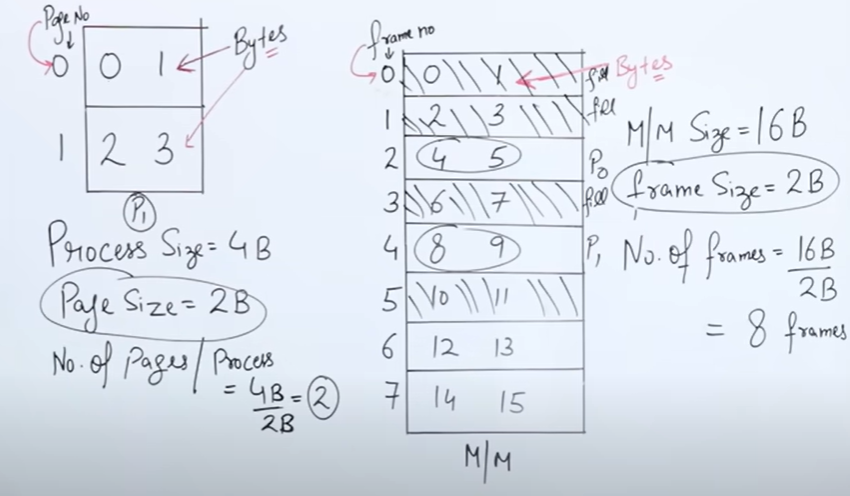 Page No
0 0 1
Bytes
1 2 3
P1
Process Size = 4B
Page Size = 2B
No. of Pages / Process
= 4B / 2B = 2
frame no
0 0 1 fill
Bytes
1 2 3 fill
2 4 5 P0
3 6 7 fill
4 8 9 P1
5 10 11
6 12 13
7 14 15
M/M
M/M Size = 16B
frame Size = 2B
No. of frames = 16B / 2B
= 8 frames